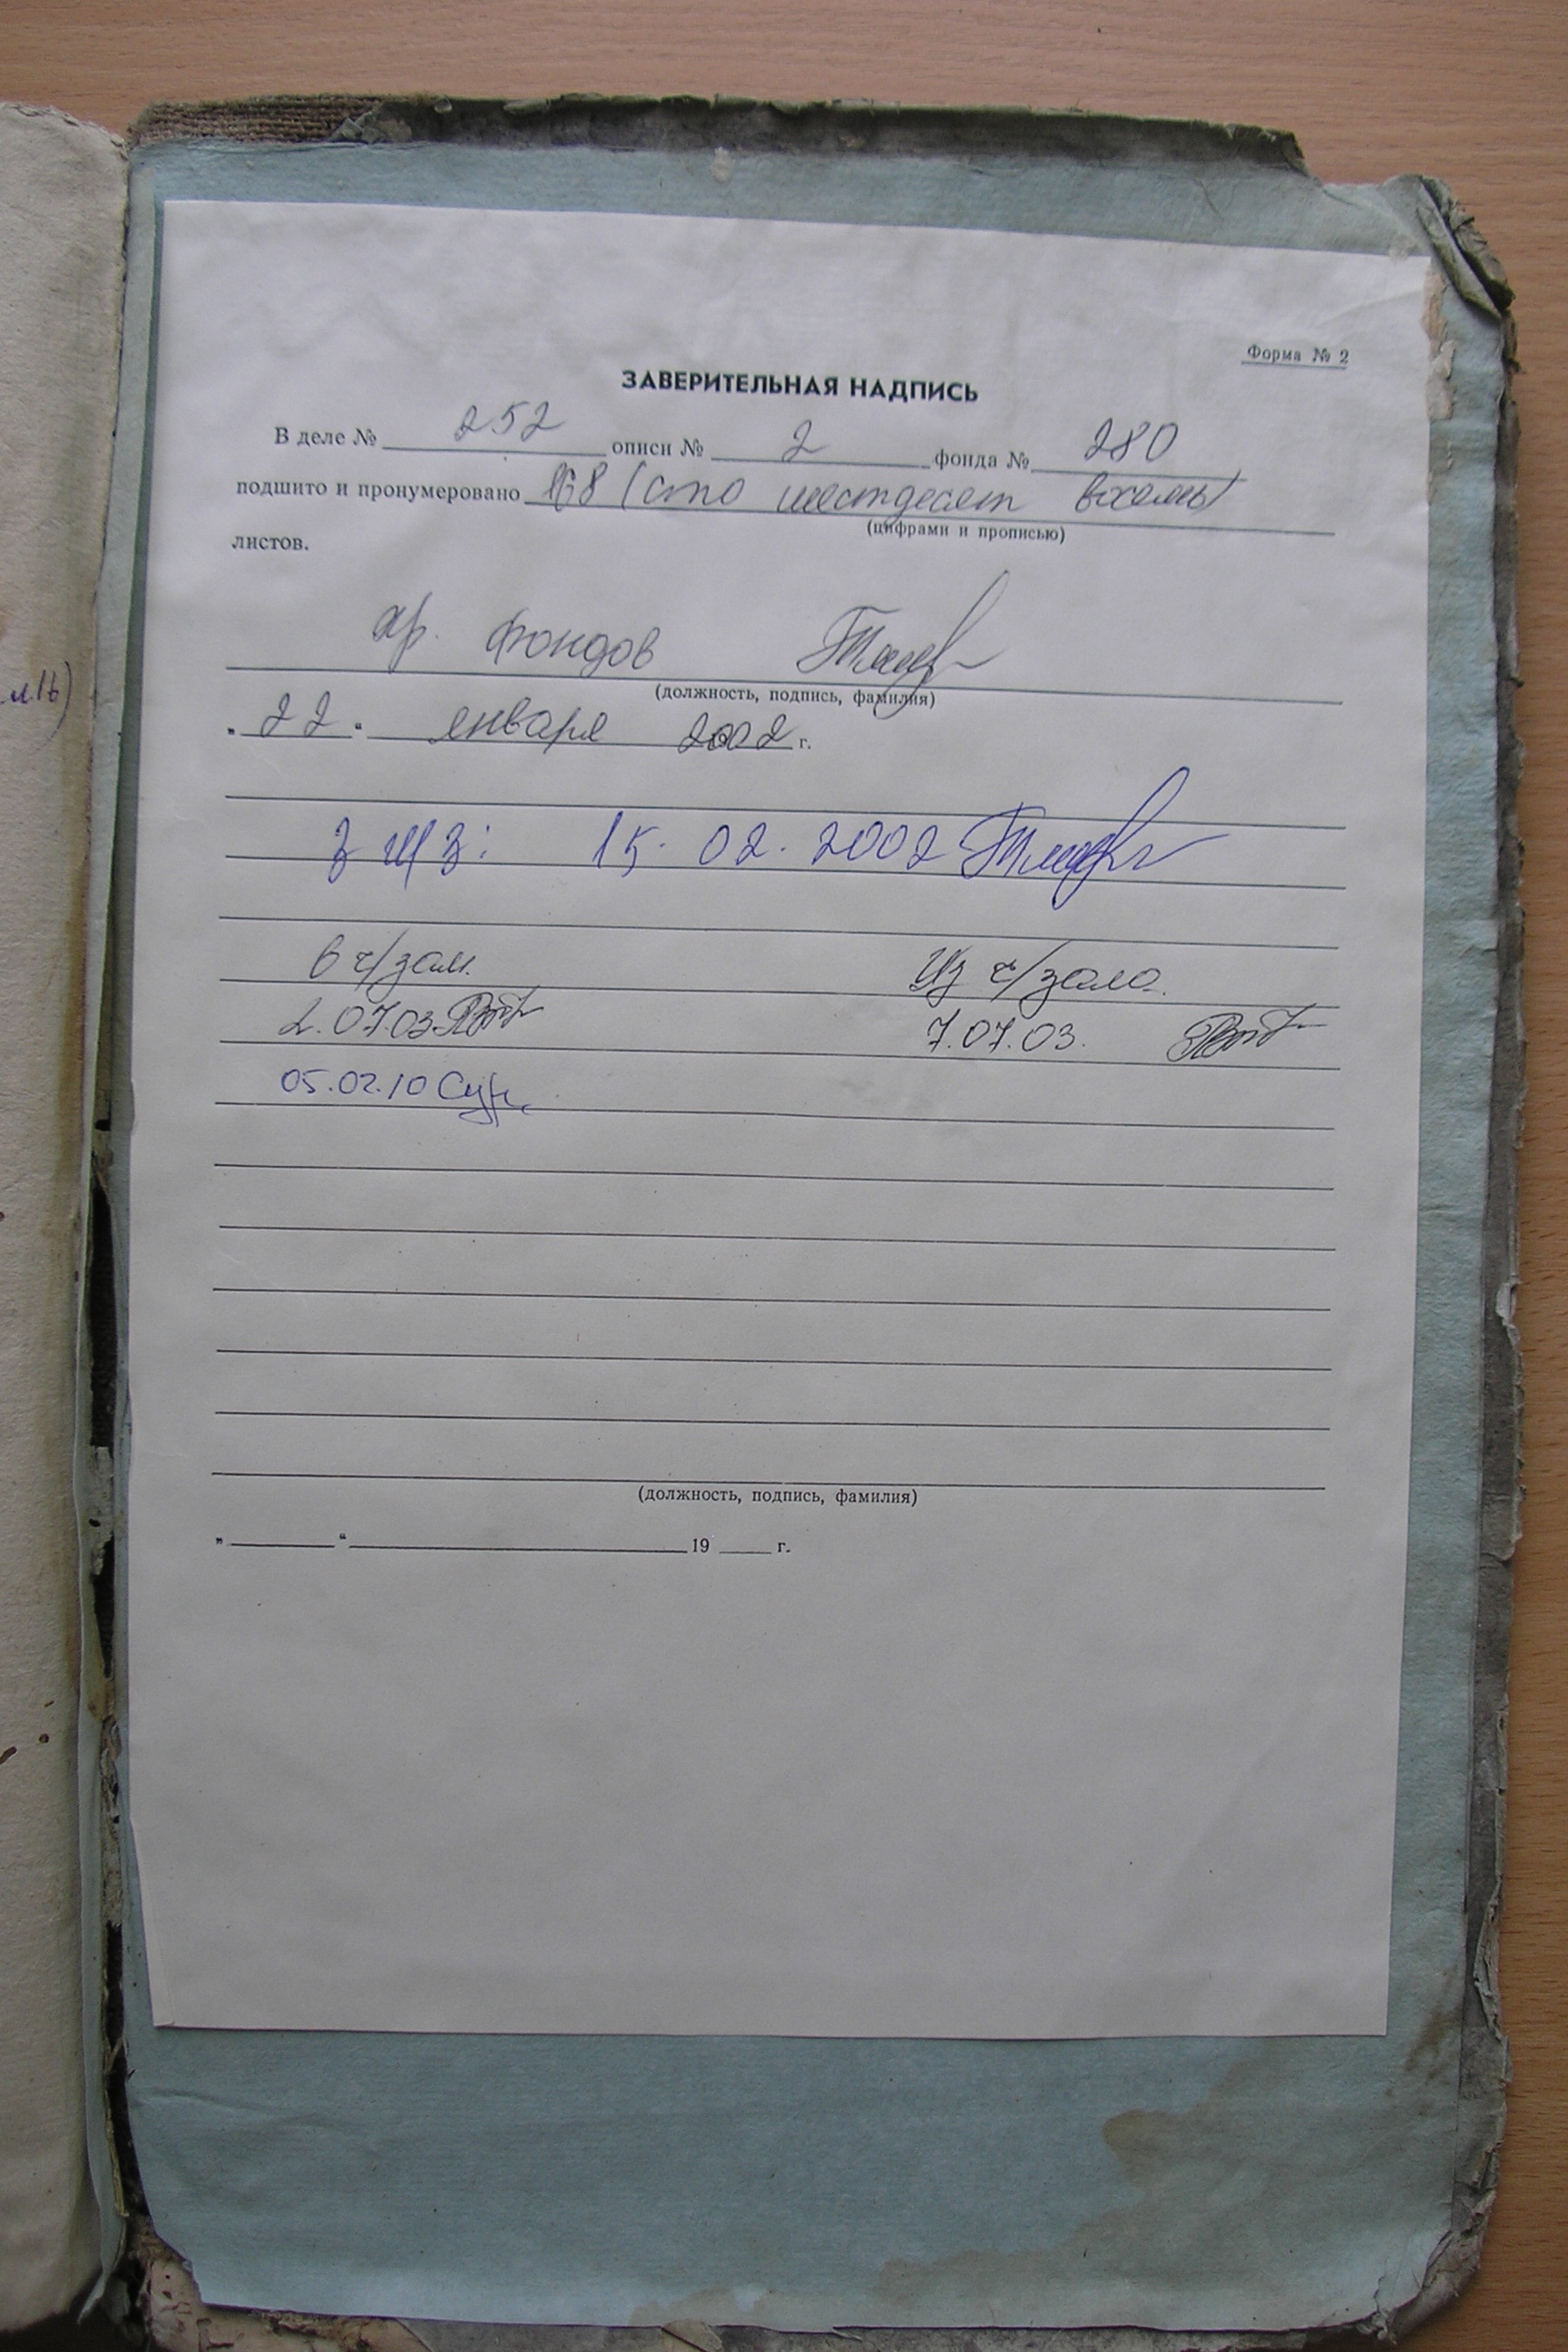 л.16)
Форма № 2
ЗАВЕРИТЕЛЬНАЯ НАДПИСЬ
В деле № 252 описи № 2 фонда № 280
подшито и пронумеровано 168 (сто шестдесят восемь)
(цифрами и прописью)
листов.
хр. фондов
(должность, подпись, фамилия)
"22" января 2002 г.
15.02.2002
в ч/зал. Из ч/зала.
2.07.03. 7.07.03.
05.02.10
(должность, подпись, фамилия)
„ “ 19 г.